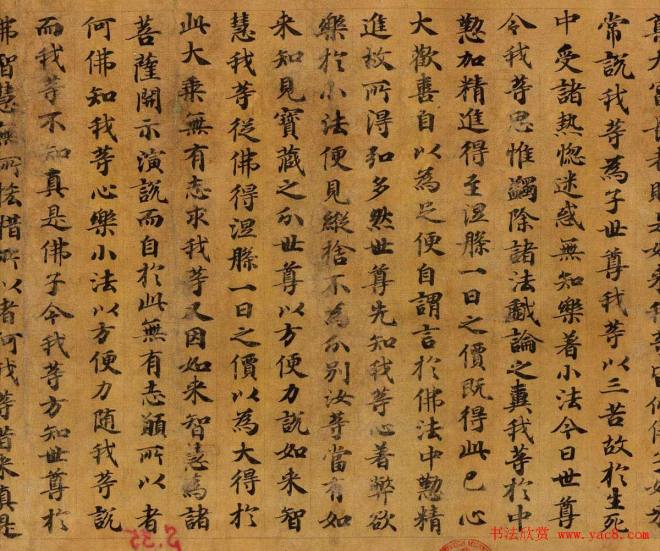 大富長者則是如來我等皆似佛子如來
常說我等為子世尊我等以三苦故於生死
中受諸熱惱迷惑無知樂著小法今日世尊
令我等思惟蠲除諸法戲論之糞我等於中
懃加精進得至涅槃一日之價既得此已心
大歡喜自以為足便自謂言於佛法中懃精
進故所得弘多然世尊先知我等心著弊欲
樂於小法便見縱捨不為分別汝等當有如
來知見寶藏之分世尊以方便力說如來智
慧我等從佛得涅槃一日之價以為大得於
此大乘無有志求我等又因如來智慧為諸
菩薩開示演說而自於此無有志願所以者
何佛知我等心樂小法以方便力隨我等說
而我等不知真是佛子今我等方知世尊於
佛智慧無所悋惜所以者何我等昔來真是
5.35
书法欣赏 www.yac8.com